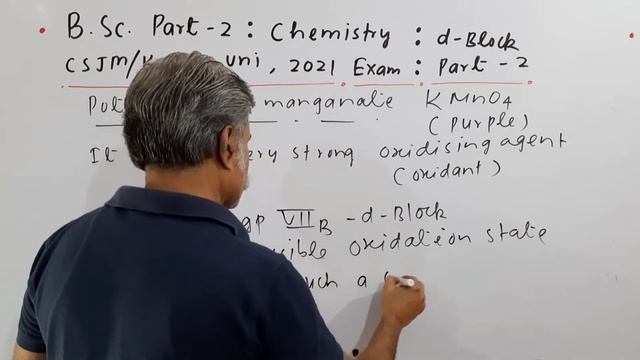 B.Sc. Part-2 : Chemistry : d-Block
CSJM/ Uni, 2021 Exam : Part - 2
Pot manganatie KMnO4
(purple)
It ery strong oxidising agent
(oxidant)
gp VII B -d-Block
sible oxidation state
uch a